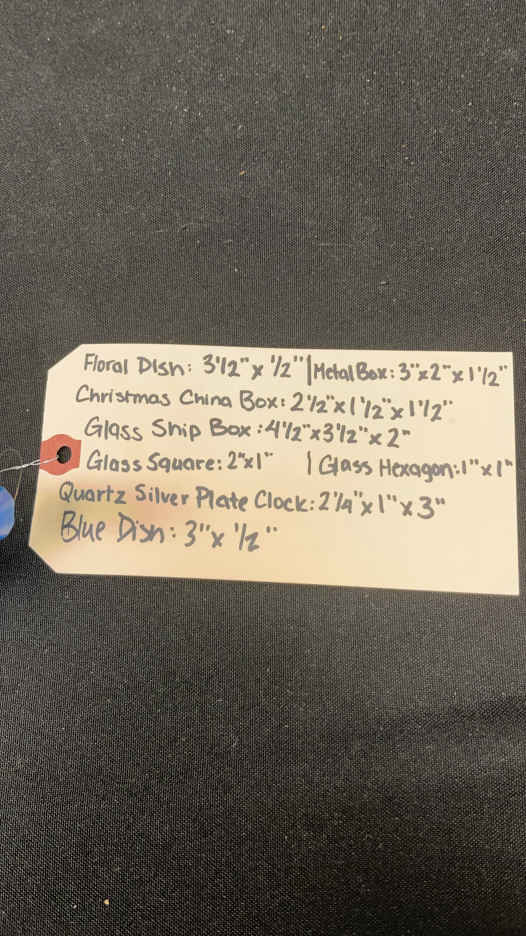 Floral Dish: 3 1/2" x 1/2" | Metal Box: 3" x 2" x 1 1/2"
Christmas China Box: 2 1/2" x 1 1/2" x 1 1/2"
Glass Ship Box: 4 1/2" x 3 1/2" x 2"
Glass Square: 2" x 1" | Glass Hexagon: 1" x 1"
Quartz Silver Plate Clock: 2 1/4" x 1" x 3"
Blue Dish: 3" x 1/2"